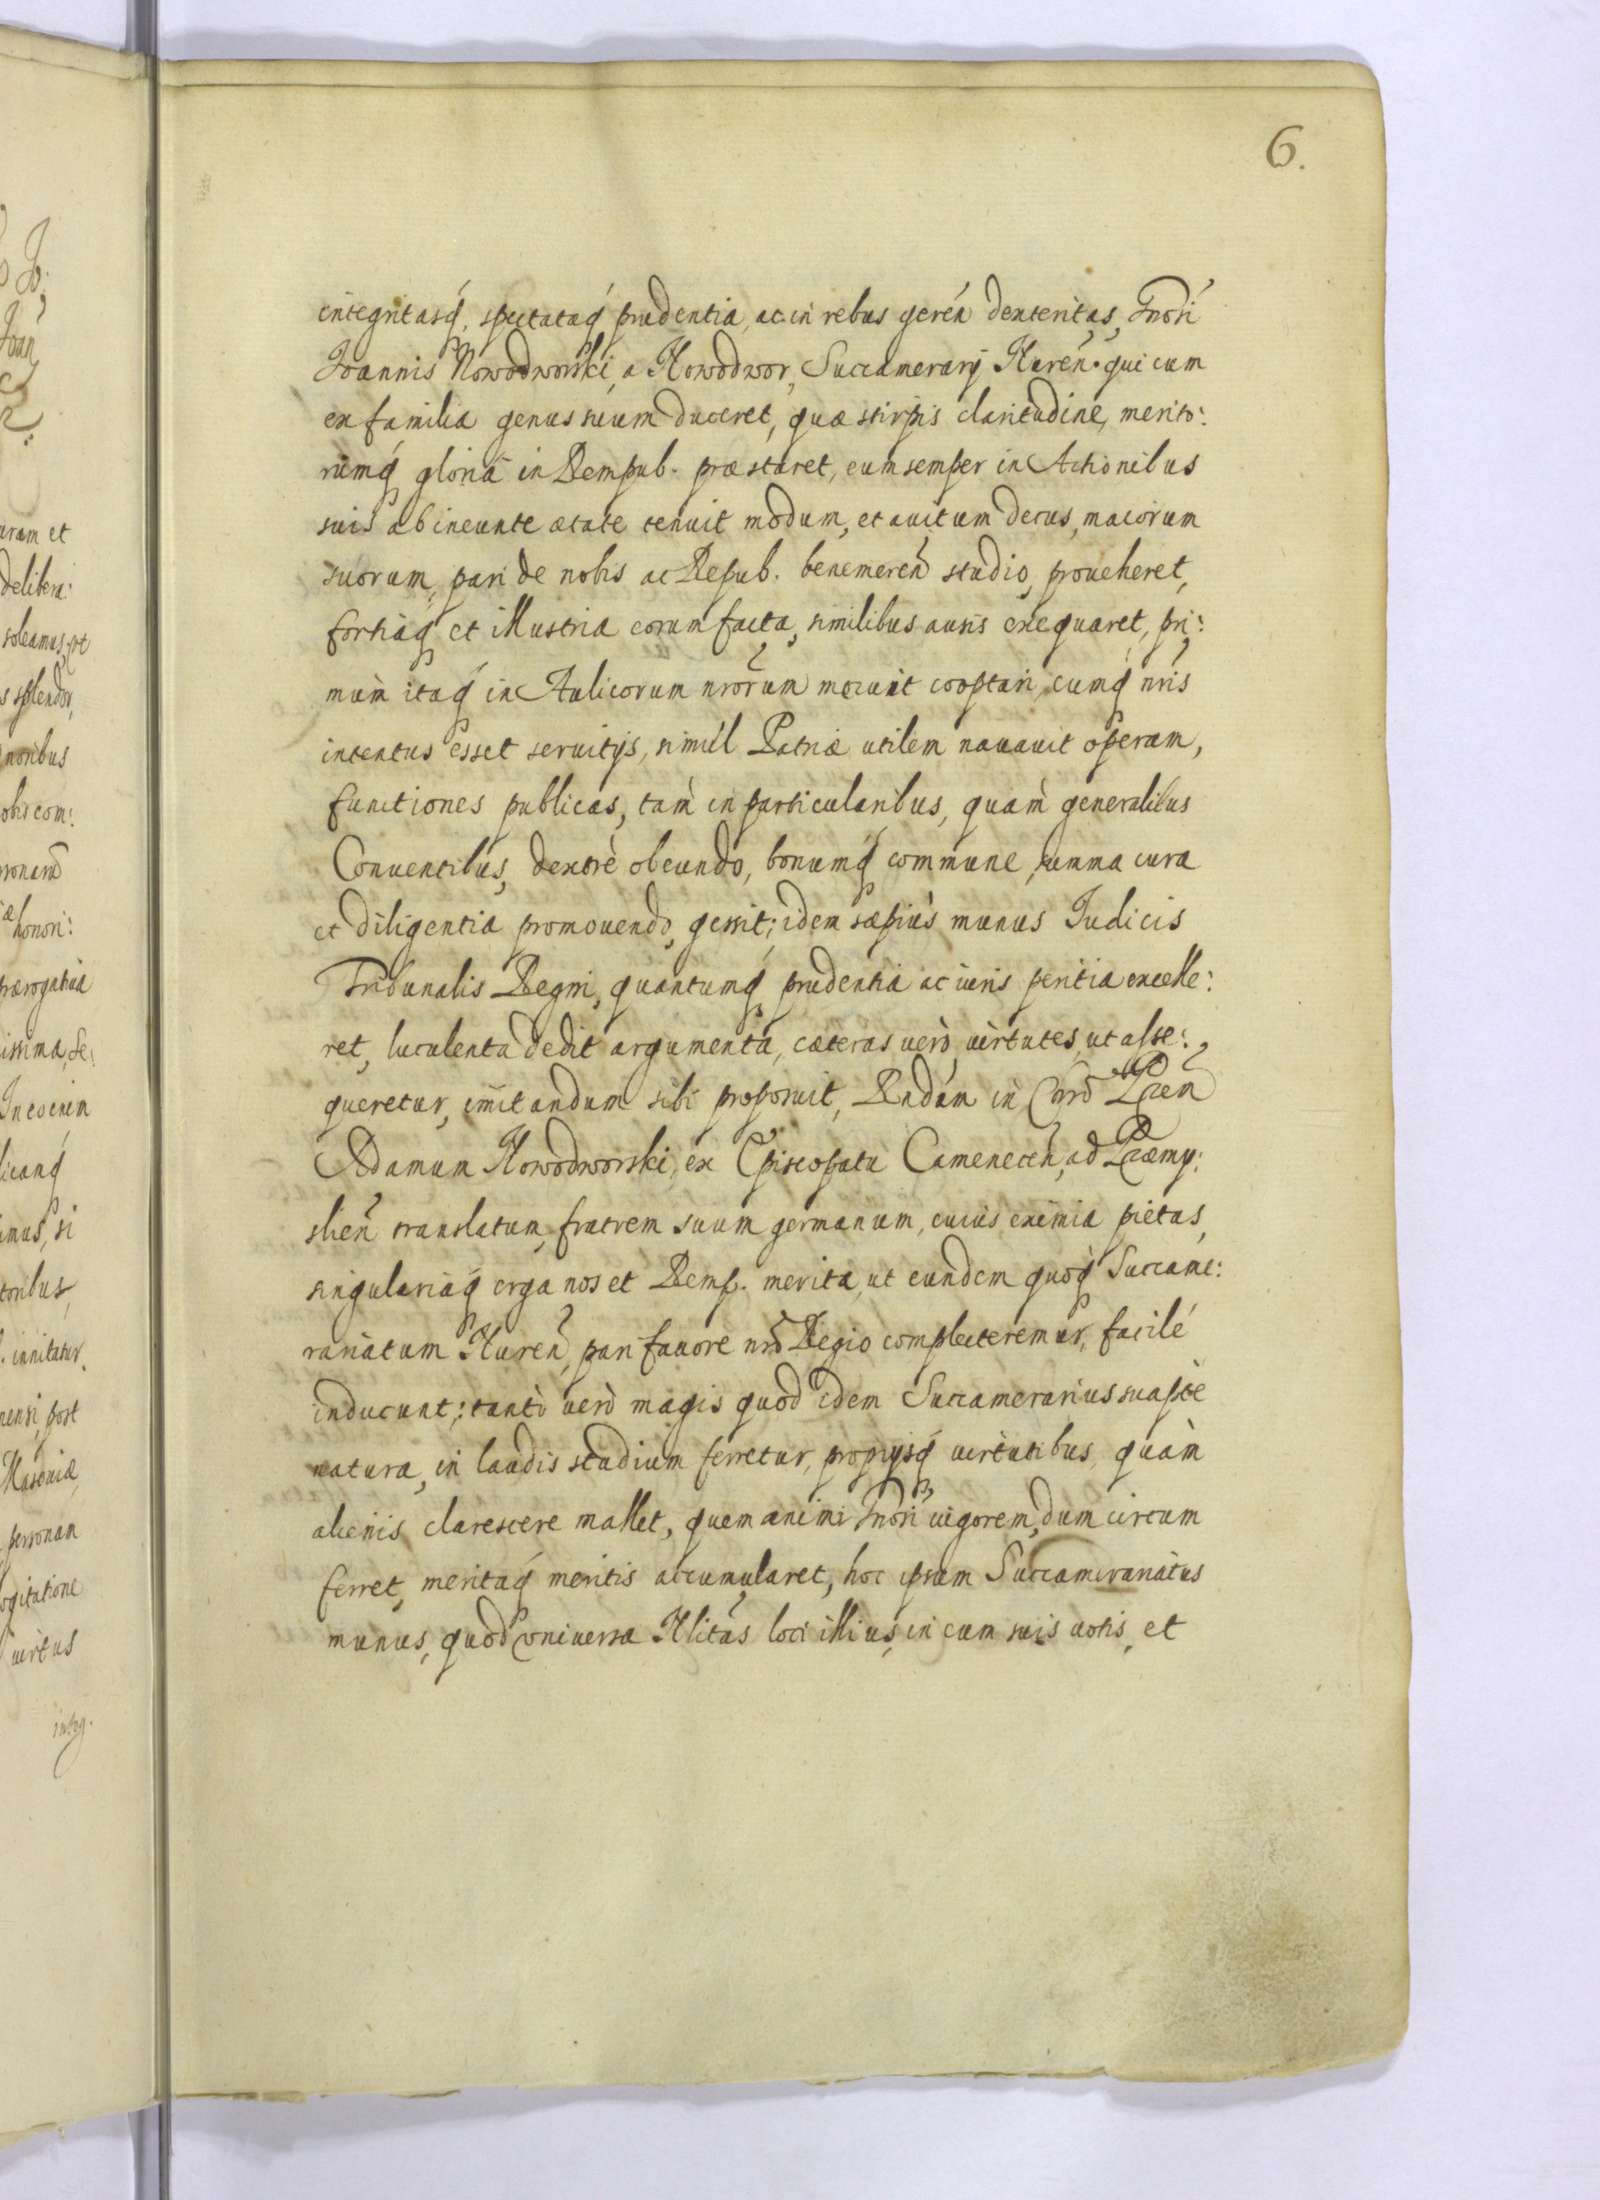 6.
integritasq́, spectataq́ prudentia, ac in rebus geren̄ dexteritas, Gnōsi
Joannis Nowodworski, a Nowodwor, Succamerarij Nuren̄. qui cum
ex familia genus suum duceret, quæ stirpis claritudine, merito:
rumq́ gloriâ in Rempub. præstaret, eum semper in Actionibus
suis ab ineunte ætate tenuit modum, et auitum decus, maiorum
suorum, pari de nobis ac Repub. benemeren̄ studio, proueheret,
fortiaq́ et illustria eorum facta, similibus ausis exequaret, pri:
mum itaq́ in Aulicorum nrōrum meruit cooptari, cumq́ nr̄is
intentus esset seruitijs, simul Patriæ utilem nauauit operam,
functiones publicas, tam̀ in particularibus, quam̀ generalibus
Conuentibus, dextrè obeundo, bonumq́ commune, summa cura
et diligentia promouendo, gessit; idem sæpius munus Iudicis
Tribunalis Regni, quantumq́ prudentia ac iuris peritia excelle:
ret, luculenta dedit argumenta, cæteras uerò uirtutes, ut asse:
queretur, imitandum sibi proposuit, Rndūm in Chrō Pr̄em
Adamum Nowodworski, ex Episcopatu Camenecen̄, ad Præmy:
slien̄ translatum, fratrem suum germanum, cuius eximia pietas,
singulariaq́ erga nos et Remp. merita, ut eundem quoq́ Succame:
rariatum Nuren̄, pari fauore nrō Regio complecteremur, facilé
inducunt; tantò uerò magis quod idem Succamerarius suapte
natura, in laudis studium ferretur, proprijsq́ uirtutibus, quàm
alienis clarescere mallet, quem animi Gnōsi uigorem, dum circum
ferret, meritaq́ meritis accumularet, hoc ipsum Succamerariatus
munus, quod vniuersa Nlitas loci illius, in eum suis uotis, et